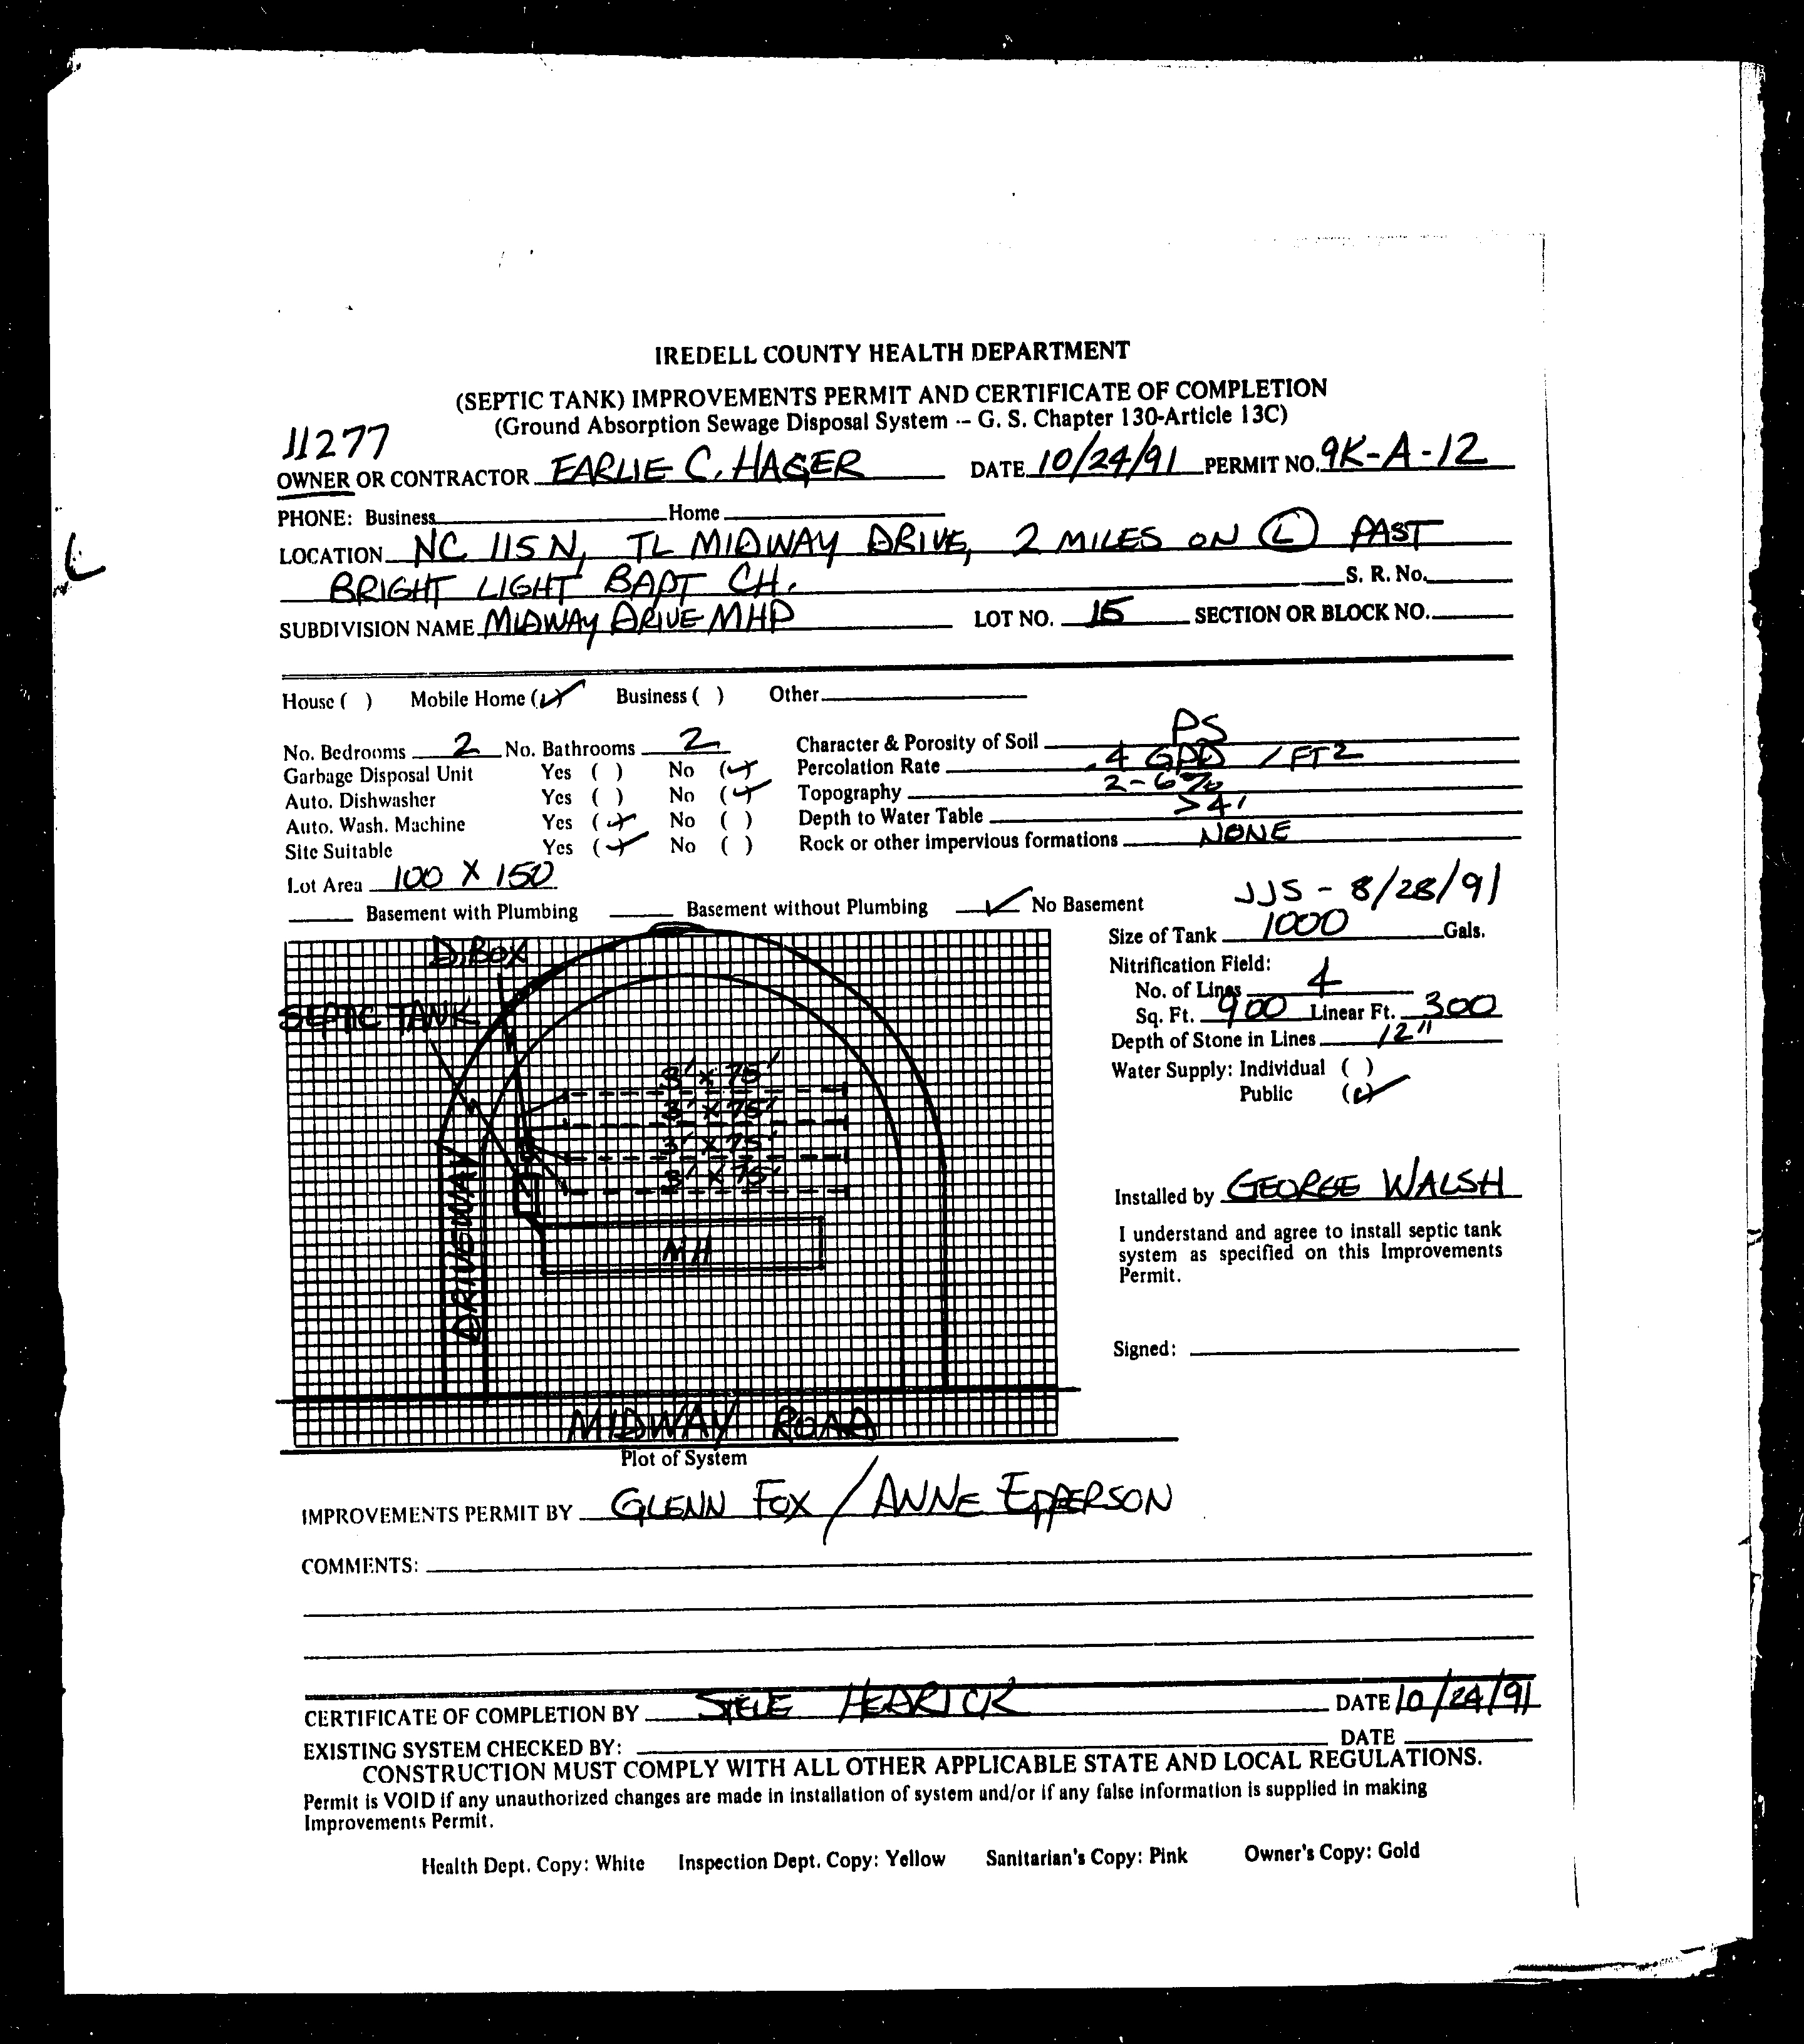 IREDELL COUNTY HEALTH DEPARTMENT
(SEPTIC TANK) IMPROVEMENTS PERMIT AND CERTIFICATE OF COMPLETION
(Ground Absorption Sewage Disposal System -- G. S. Chapter 130-Article 13C)
11277
OWNER OR CONTRACTOR EARLIE C. HAGER DATE 10/24/91 PERMIT NO. 9K-A-12
PHONE: Business Home
LOCATION NC 115 N, TL MIDWAY DRIVE, 2 MILES ON (L) PAST
L
BRIGHT LIGHT BAPT CH. S. R. No.
SUBDIVISION NAME MIDWAY DRIVE MHP LOT NO. 15 SECTION OR BLOCK NO.
House ( ) Mobile Home (✓) Business ( ) Other
No. Bedrooms 2 No. Bathrooms 2 Character & Porosity of Soil PS
Garbage Disposal Unit Yes ( ) No (✓) Percolation Rate .4 GPD / FT2
Auto. Dishwasher Yes ( ) No (✓) Topography 2-6%
Auto. Wash. Machine Yes (✓) No ( ) Depth to Water Table >4'
Site Suitable Yes (✓) No ( ) Rock or other impervious formations NONE
Lot Area 100 X 150
JJS - 8/28/91
Basement with Plumbing Basement without Plumbing ✓ No Basement
Size of Tank 1000 Gals.
Nitrification Field:
No. of Lines 4
Sq. Ft. 900 Linear Ft. 300
Depth of Stone in Lines 12"
Water Supply: Individual ( )
Public (✓)
Installed by GEORGE WALSH
I understand and agree to install septic tank
system as specified on this Improvements
Permit.
Signed:
D.BOX
SEPTIC TANK
3' X 75'
3' X 75'
3' X 75'
3' X 75'
MH
DRIVEWAY
MIDWAY ROAD
Plot of System
IMPROVEMENTS PERMIT BY GLENN FOX / ANNE EPPERSON
COMMENTS:
CERTIFICATE OF COMPLETION BY HEDRICK DATE 10/24/91
EXISTING SYSTEM CHECKED BY: DATE
CONSTRUCTION MUST COMPLY WITH ALL OTHER APPLICABLE STATE AND LOCAL REGULATIONS.
Permit is VOID if any unauthorized changes are made in installation of system and/or if any false information is supplied in making
Improvements Permit.
Health Dept. Copy: White Inspection Dept. Copy: Yellow Sanitarian's Copy: Pink Owner's Copy: Gold